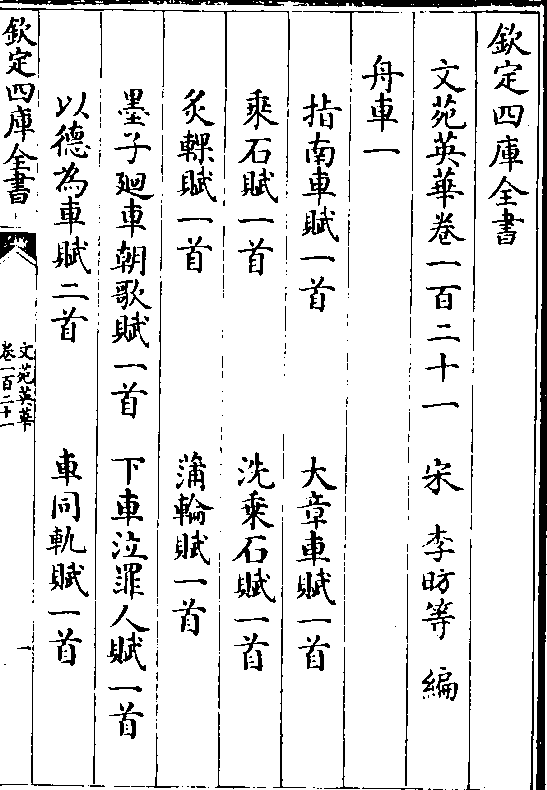 欽定四庫全書
文苑英華卷一百二十一 宋 李昉等 編
舟車一
指南車賦一首 大章車賦一首
乘石賦一首 洗乘石賦一首
炙輠賦一首 蒲輪賦一首
墨子廻車朝歌賦一首 下車泣罪人賦一首
以德為車賦二首 車同軌賦一首
欽定四庫全書
文苑英華
卷一百二十一
一